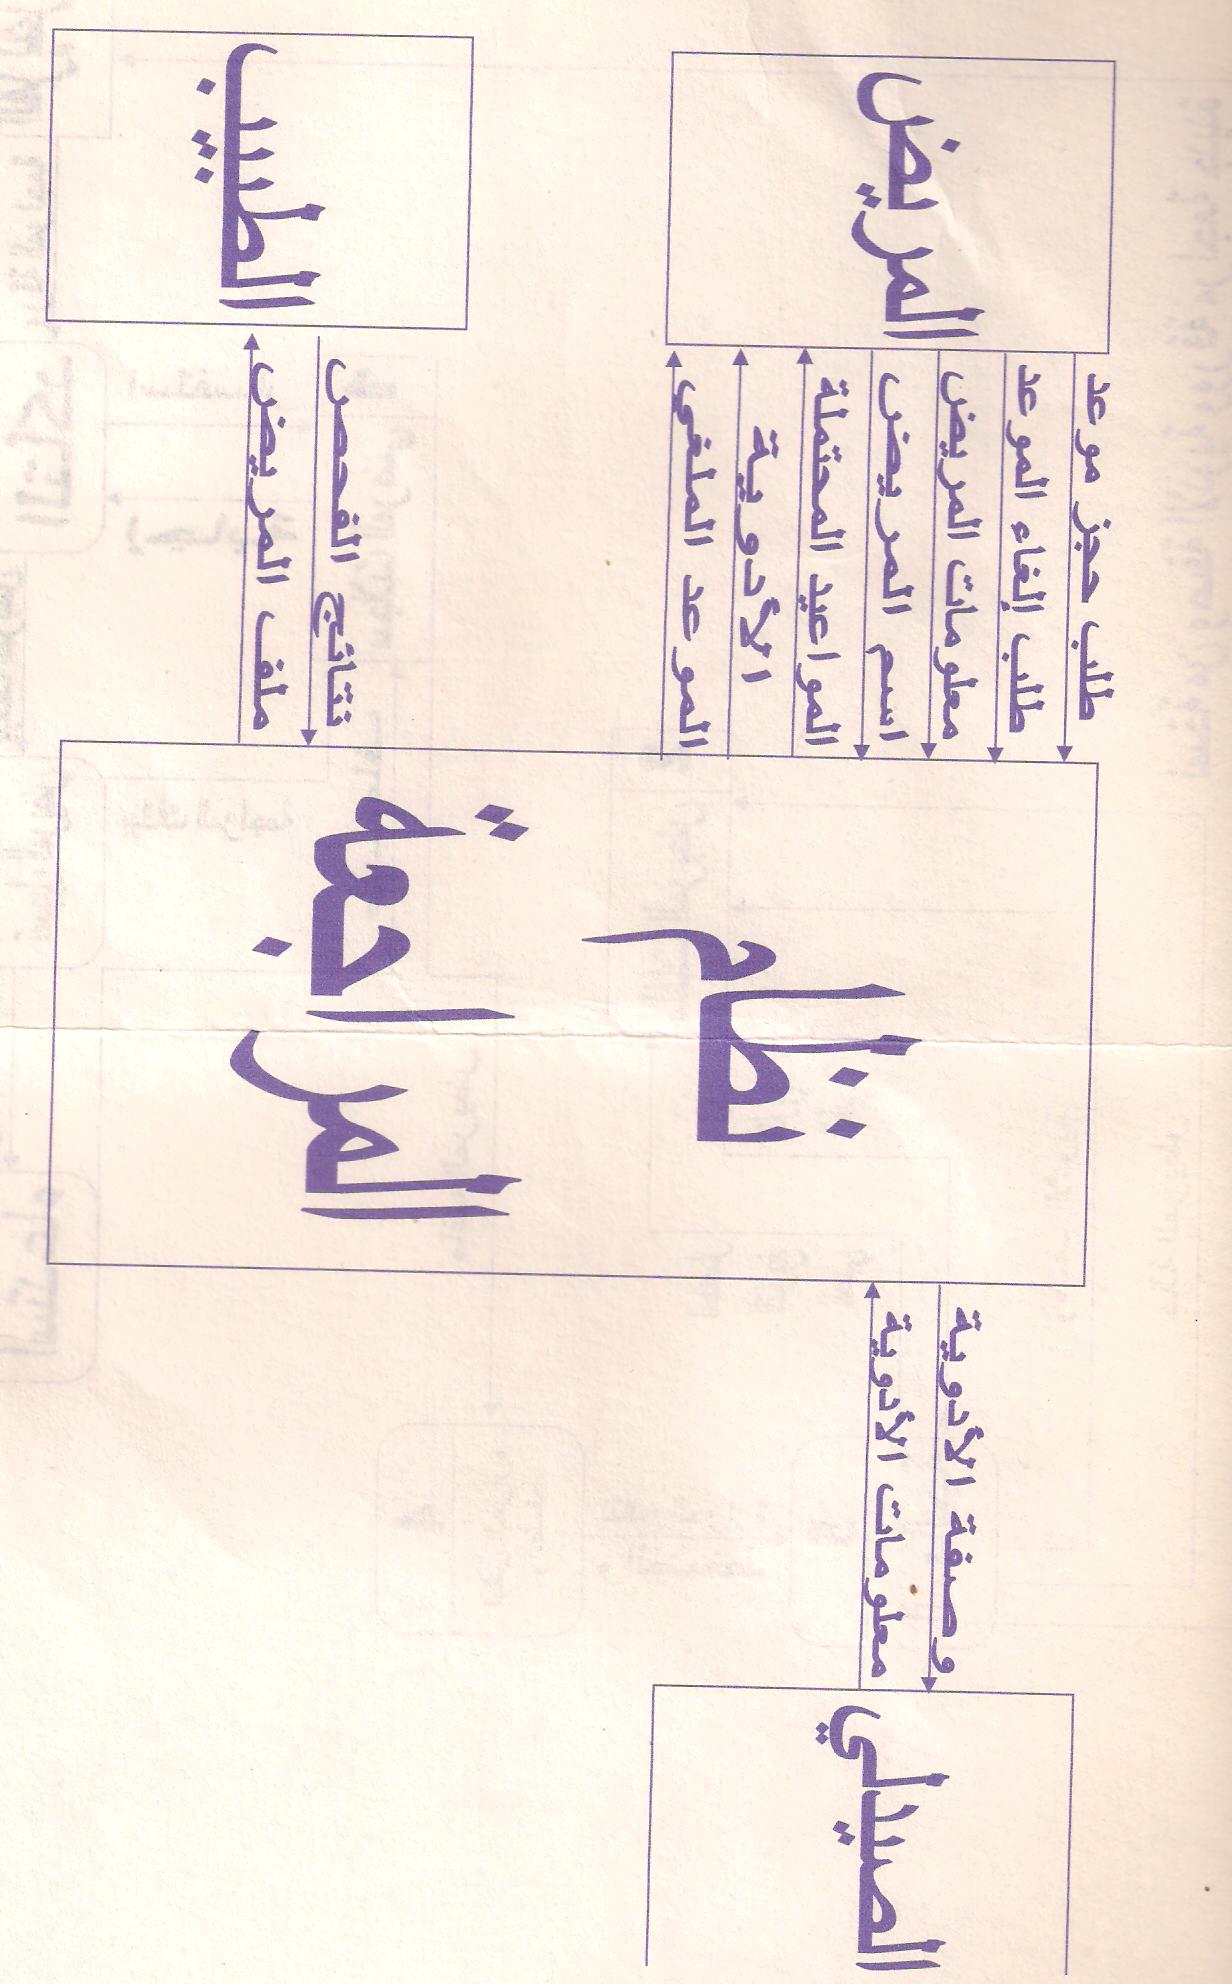 المريض
طلب حجز موعد
طلب إلغاء الموعد
معلومات المريض
اسم المريض
المواعيد المحتملة
الأدوية
الموعد الملغي
الطبيب
نتائج الفحص
ملف المريض
نظام
المراجعة
وصفة الأدوية
معلومات الأدوية
الصيدلي